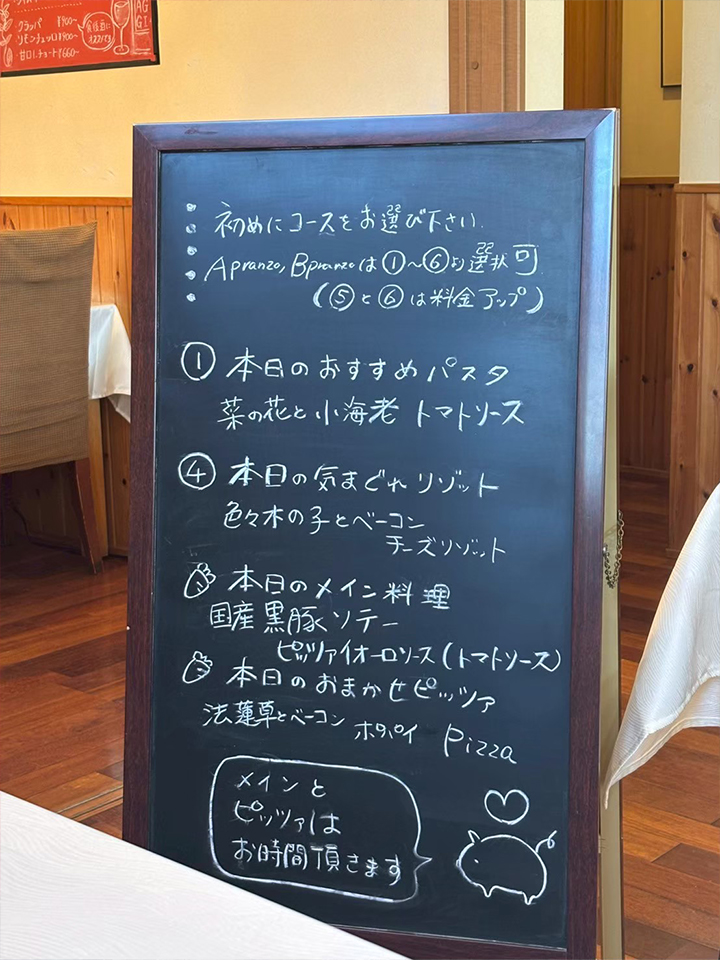 グラッパ ¥900~
リモンチェッロ¥900~
¥660~
初めにコースをお選び下さい.
Apranzo, Bpranzoは①~⑥より選択可
(⑤と⑥は料金アップ)
① 本日のおすすめパスタ
菜の花と小海老 トマトソース
④ 本日の気まぐれリゾット
色々木の子とベーコン
チーズリゾット
本日のメイン料理
国産黒豚ソテー
ピッツァイオーロソース(トマトソース)
本日のおまかせピッツァ
法蓮草とベーコン ポパイ Pizza
メインと
ピッツァは
お時間頂きます